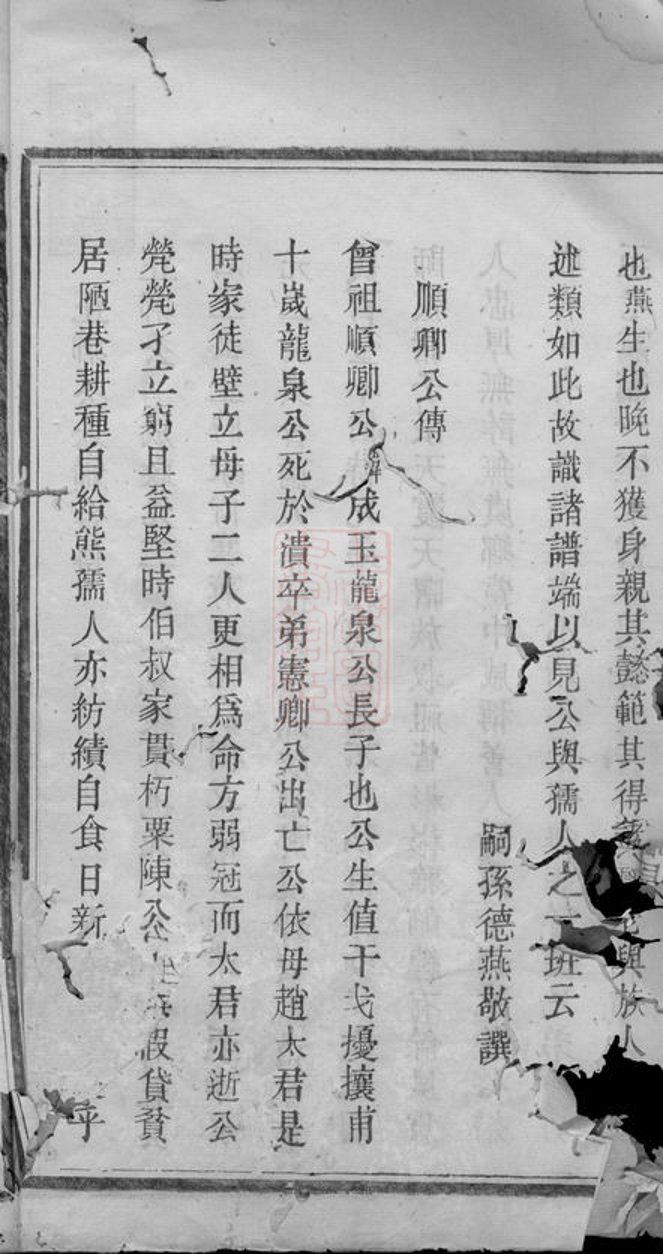 也燕生也晚不獲身親其懿範其得與族人
述類如此故識諸譜端以見公與孺人之一班云
嗣孫德燕敬譔
順卿公傳
曾祖順卿公諱成玉龍泉公長子也公生值干戈擾攘甫
十歲龍泉公死於潰卒弟憲卿公出亡公依母趙太君是
時家徒壁立母子二人更相爲命方弱冠而太君亦逝公
煢煢孑立窮且益堅時伯叔家貫朽粟陳公假貸貧
居陋巷耕種自給熊孺人亦紡績自食日新乎